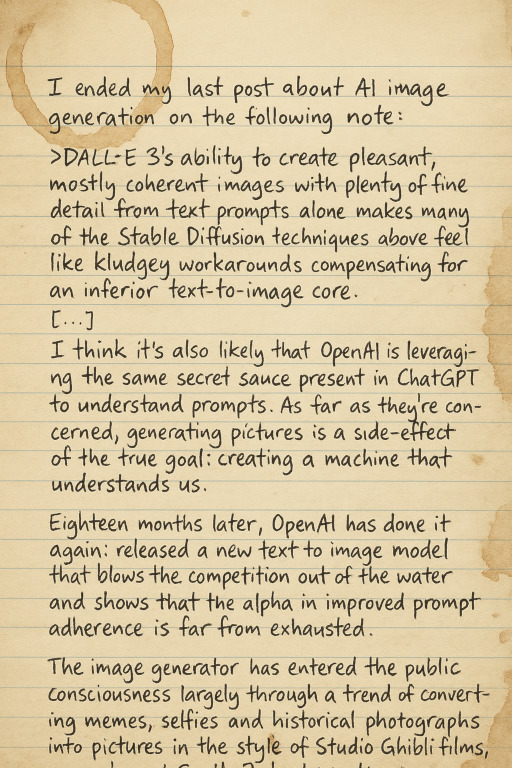 I ended my last post about AI image
generation on the following note:
>DALL-E 3's ability to create pleasant,
mostly coherent images with plenty of fine
detail from text prompts alone makes many
of the Stable Diffusion techniques above feel
like kludgey workarounds compensating for
an inferior text-to-image core.
[...]
I think it's also likely that OpenAI is leveragi-
ng the same secret sauce present in ChatGPT
to understand prompts. As far as they're con-
cerned, generating pictures is a side-effect
of the true goal: creating a machine that
understands us.
Eighteen months later, OpenAI has done it
again: released a new text to image model
that blows the competition out of the water
and shows that the alpha in improved prompt
adherence is far from exhausted.
The image generator has entered the public
consciousness largely through a trend of convert-
ing memes, selfies and historical photographs
into pictures in the style of Studio Ghibli films,